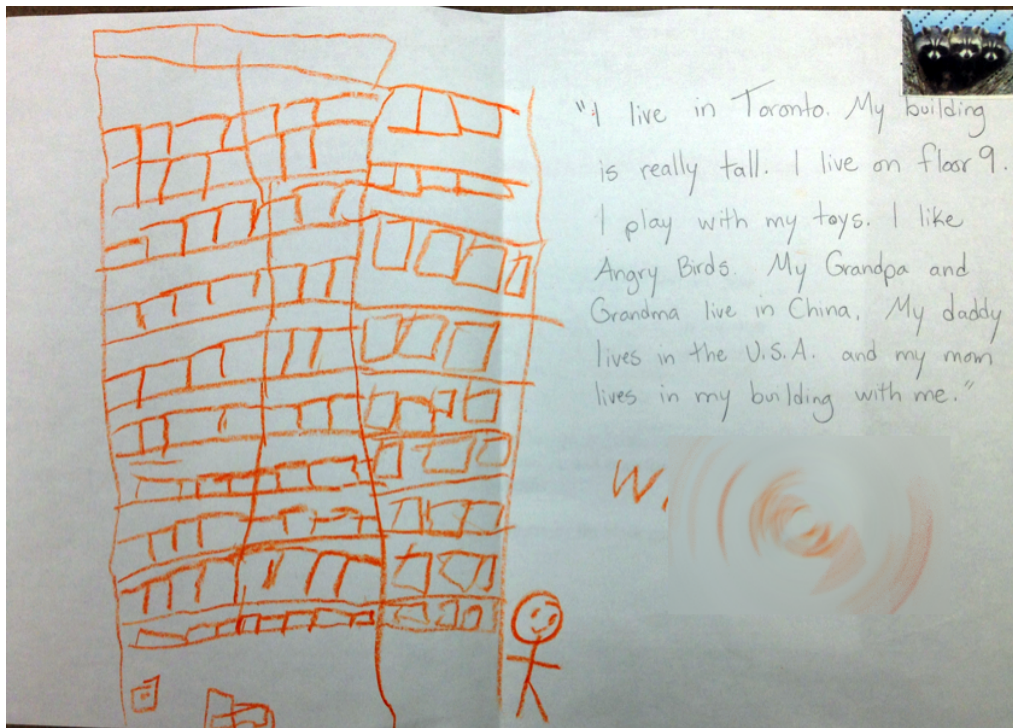 "I live in Toronto. My building
is really tall. I live on floor 9.
I play with my toys. I like
Angry Birds. My Grandpa and
Grandma live in China. My daddy
lives in the U.S.A. and my mom
lives in my building with me."
W